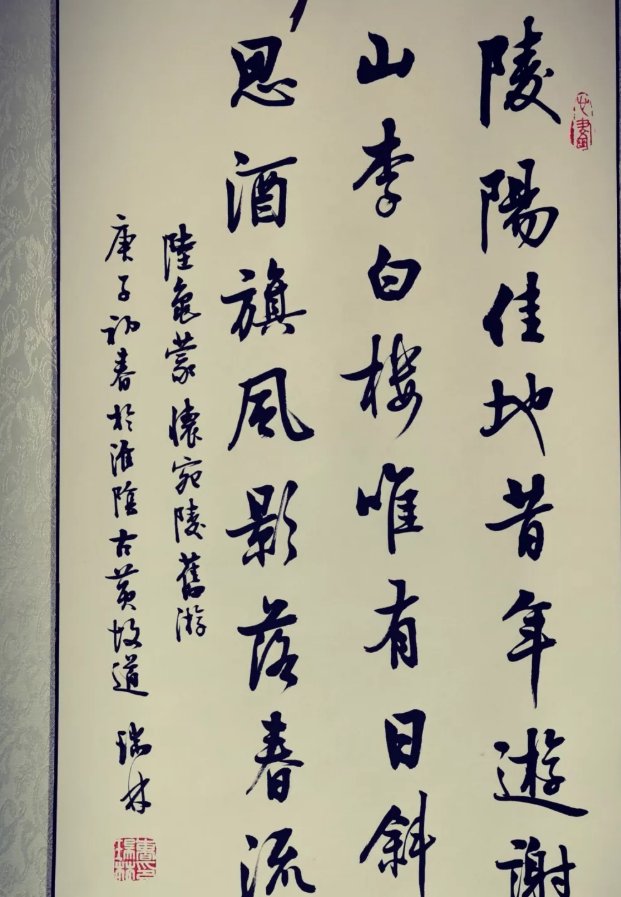 陵陽佳地昔年遊謝
山李白樓唯有日斜
思酒旗風影落春流
陸龜蒙懷宛陵舊游
庚子初春於淮陰古黃故道 瑞林